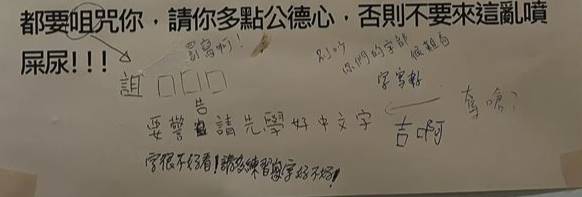 都要咀咒你，請你多點公德心，否則不要來這亂噴
屎尿!!!
詛 □□□
別吵
你們的字都
字写
告
要警 請先學好中文字
吉啊
奪嗆?
字很不好看!請多練習寫字好不好!